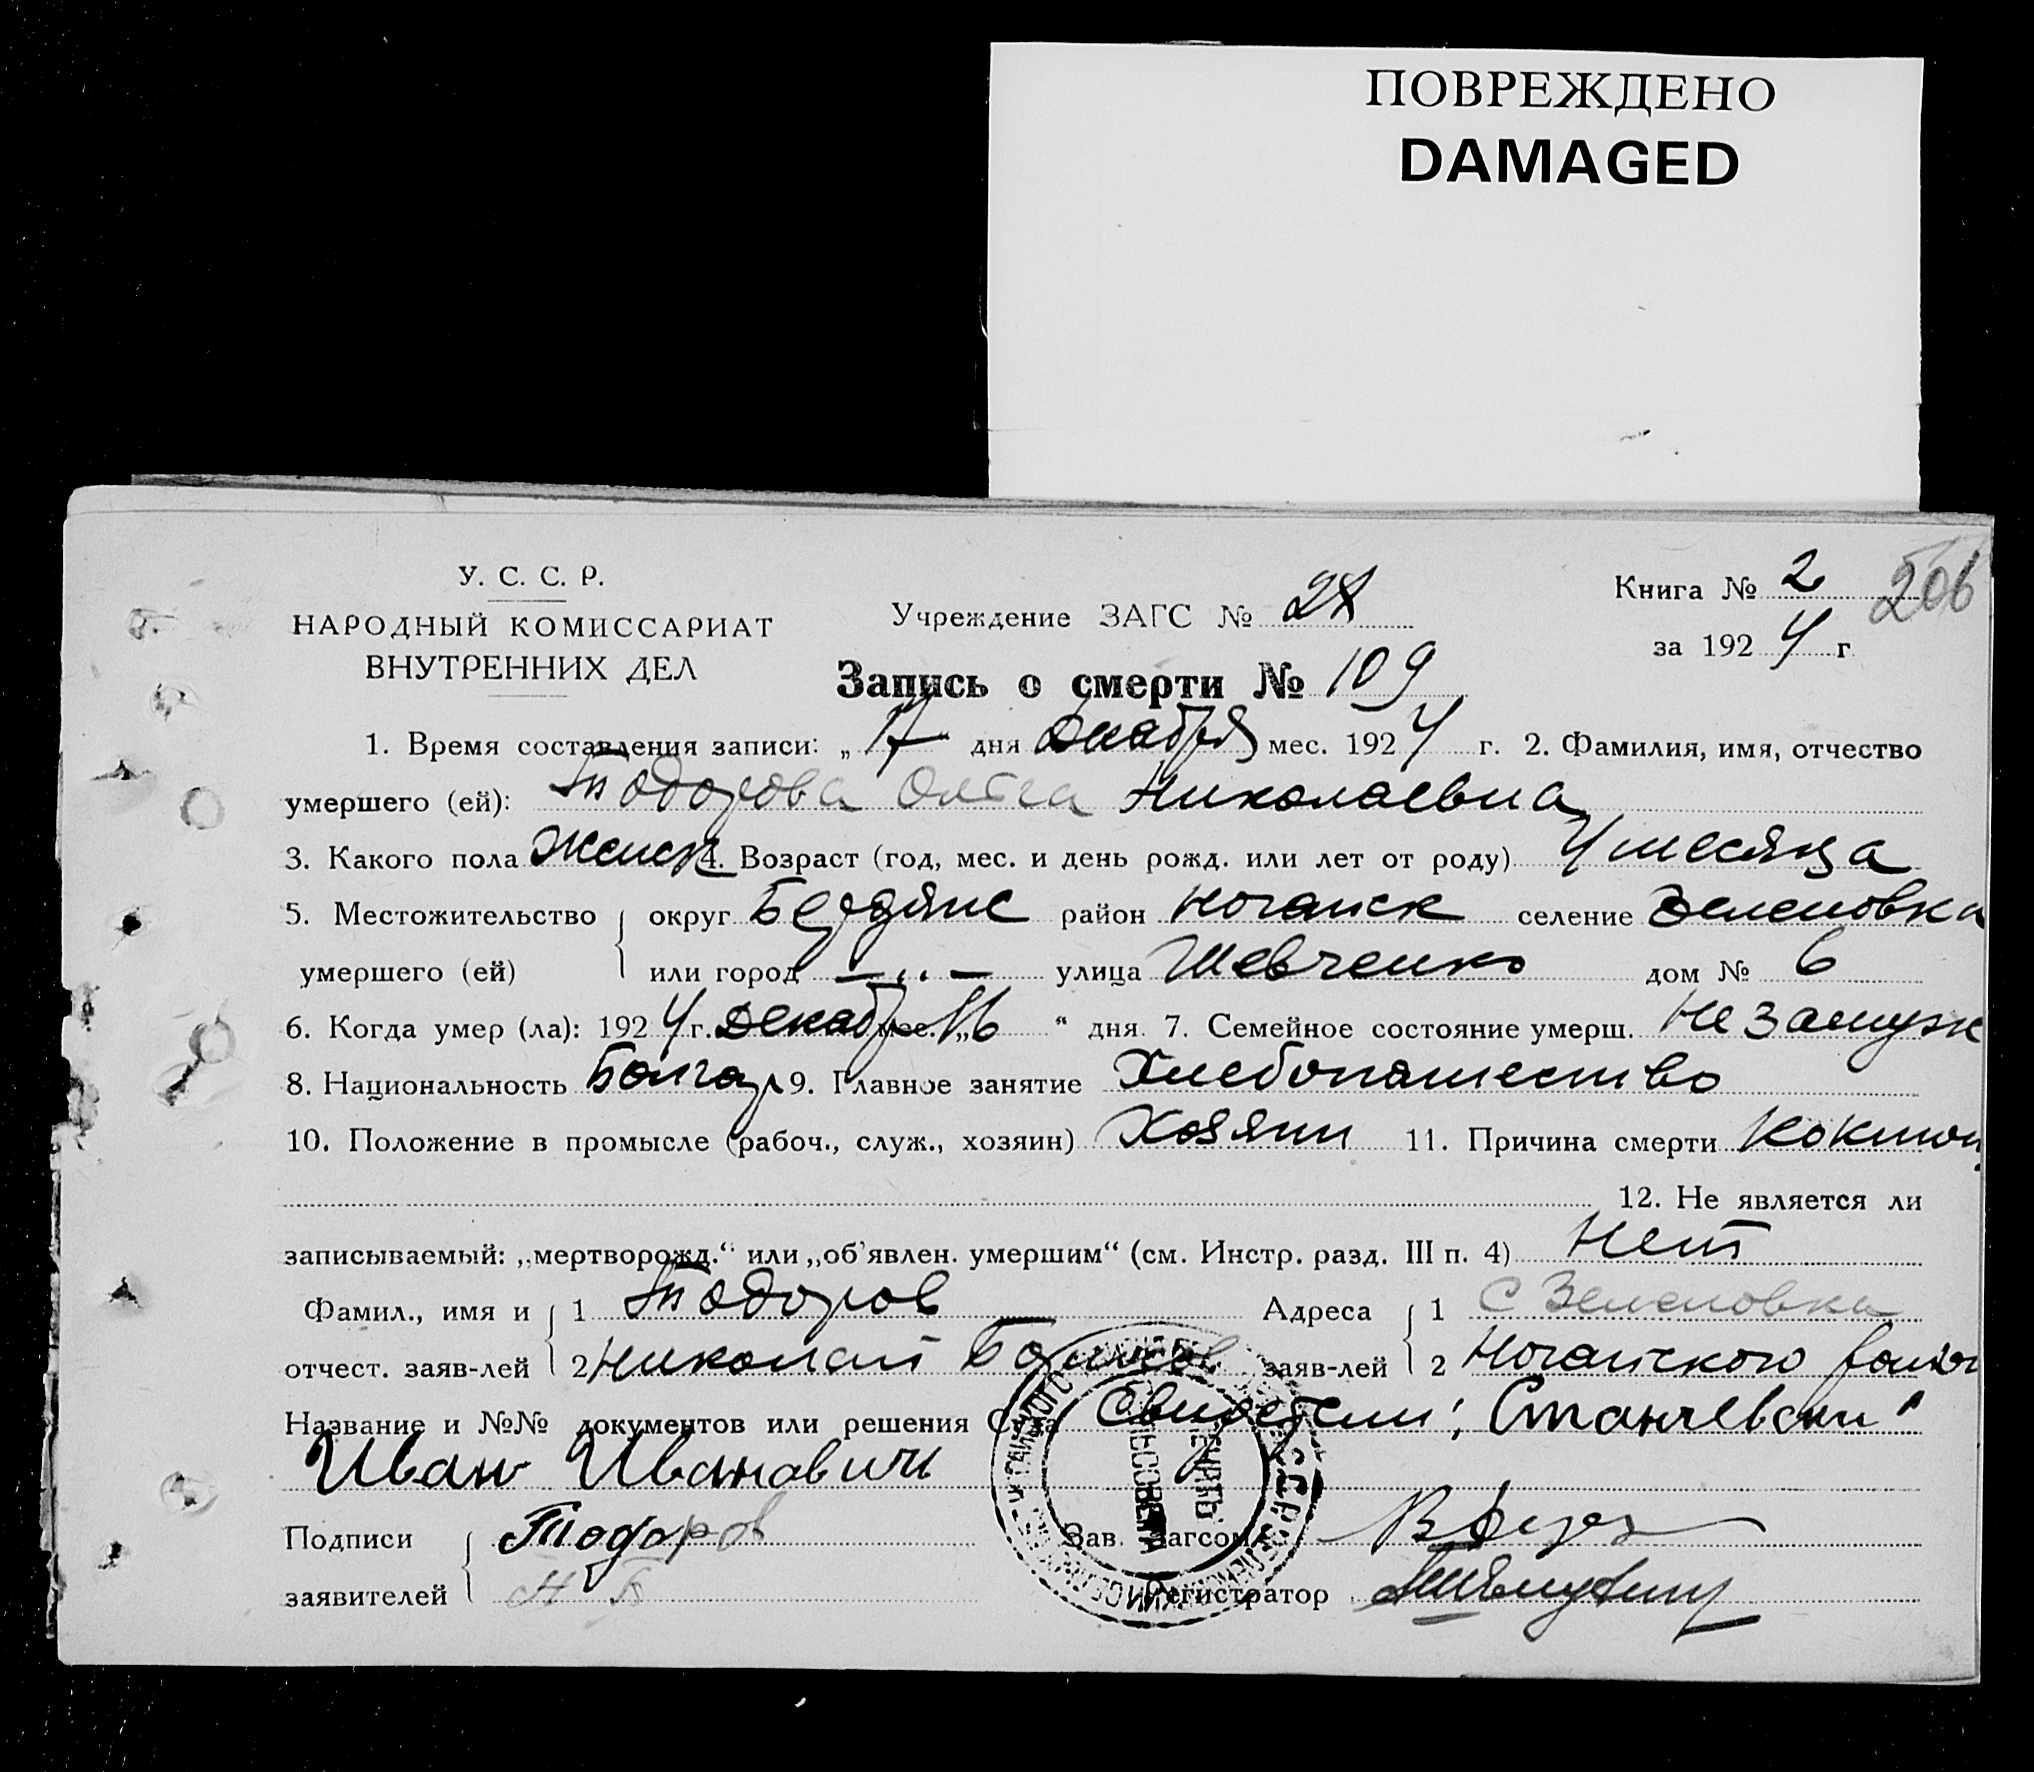 ПОВРЕЖДЕНО
DAMAGED
У. С. С. Р.
НАРОДНЫЙ КОМИССАРИАТ
ВНУТРЕННИХ ДЕЛ
Учреждение ЗАГС № 28
Книга № 2
206
за 1924 г
Запись о смерти № 109
1. Время составления записи: „17" дня Декабря мес. 1924 г. 2. Фамилия, имя, отчество
умершего (ей): Тодорова Ольга Николаевна
3. Какого пола Женск 4. Возраст (год, мес. и день рожд. или лет от роду) 4 месяца
5. Местожительство округ Бердянс район Ногайск селение Зеленовка
умершего (ей) или город — „ — улица Шевченко дом № 6
6. Когда умер (ла): 1924 г. Декабр мес. „16 “ дня. 7. Семейное состояние умерш. Не замуж
8. Национальность Болгар 9. Главное занятие Хлебопашество
10. Положение в промысле (рабоч., служ., хозяин) Хозяин 11. Причина смерти Коклюш
12. Не является ли
записываемый: „мертворожд.“ или „об'явлен. умершим“ (см. Инстр. разд. III п. 4) Нет
Фамил., имя и 1 Тодоров Адреса 1 С Зеленовка
отчест. заяв-лей 2 Николай Борисов заяв-лей 2 Ногайского
Название и №№ документов или решения Суда Свидетели: Станчевский
Иван Иванович
Подписи Тодоров Зав. Загсом
заявителей Н Б Регистратор